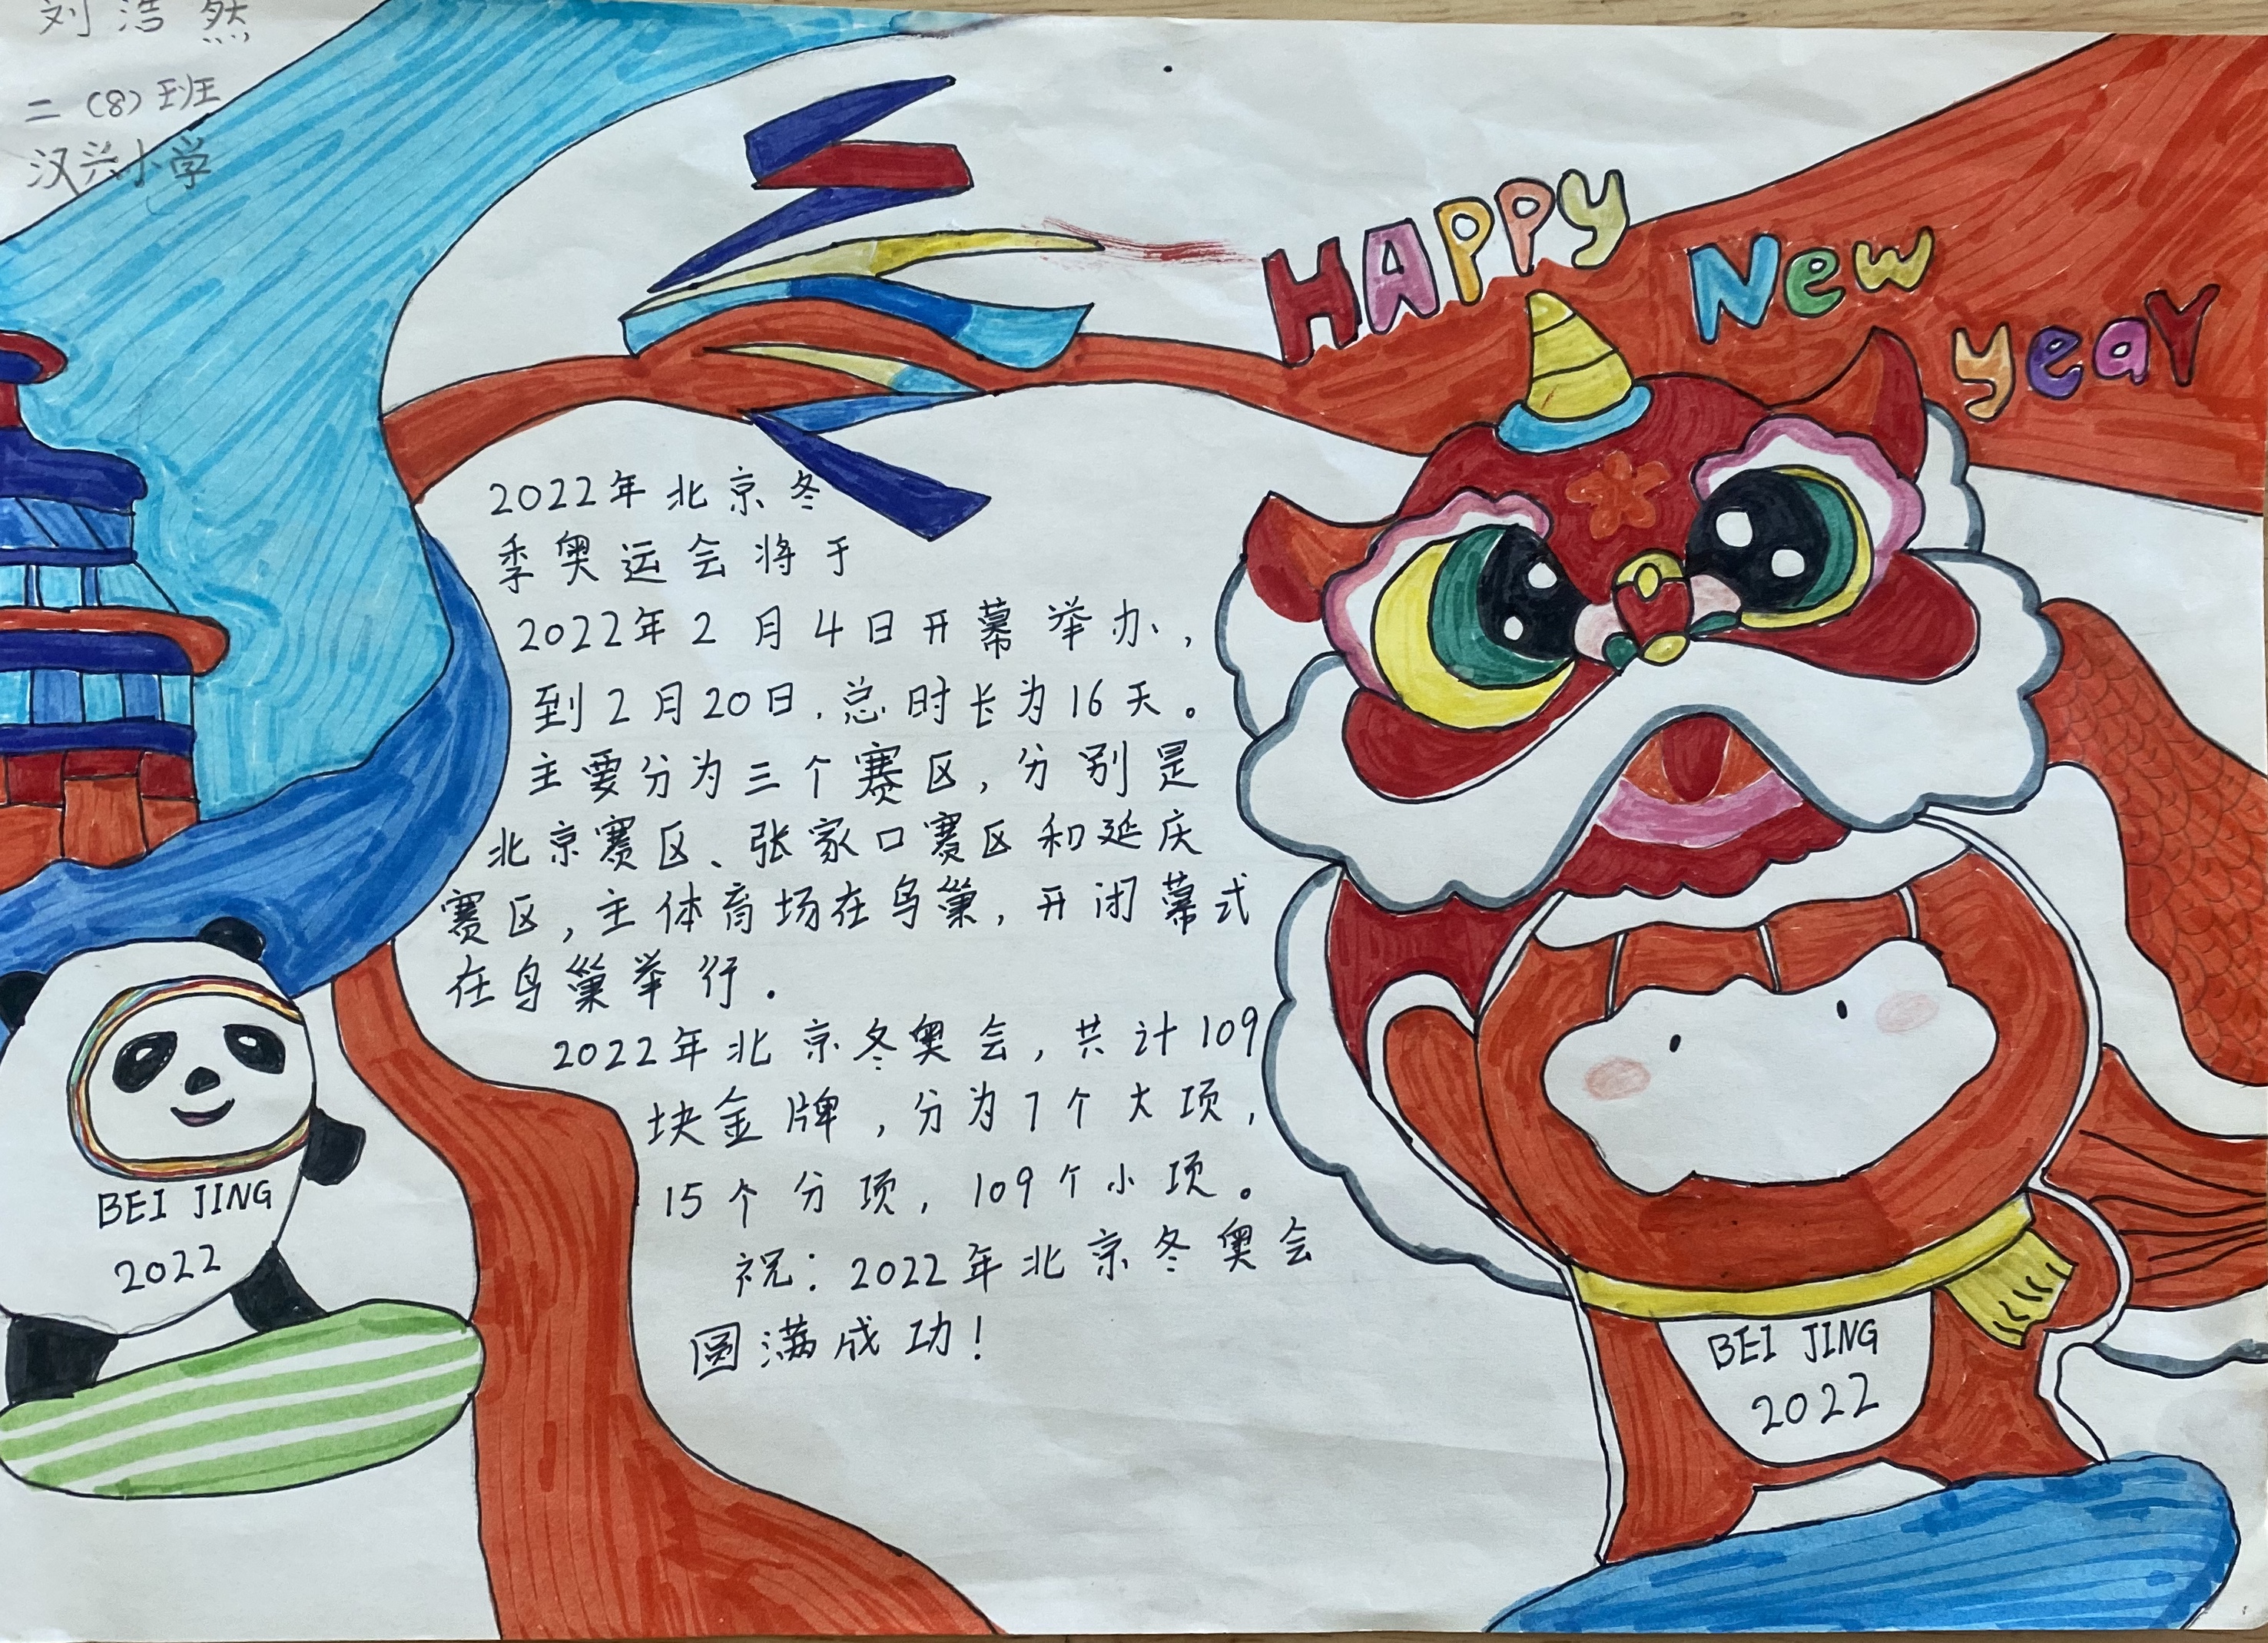 刘浩然
二（8）班
汉兴小学
HAPPY
New
yeaY
2022年北京冬
季奥运会将于
2022年2月4日开幕举办，
到2月20日.总时长为16天。
主要分为三个赛区，分别是
北京赛区、张家口赛区和延庆
赛区，主体育场在鸟巢，开闭幕式
在鸟巢举行。
2022年北京冬奥会，共计109
块金牌，分为7个大项，
15个分项，109个小项。
祝：2022年北京冬奥会
圆满成功！
BEI JING
2022
BEI JING
2022